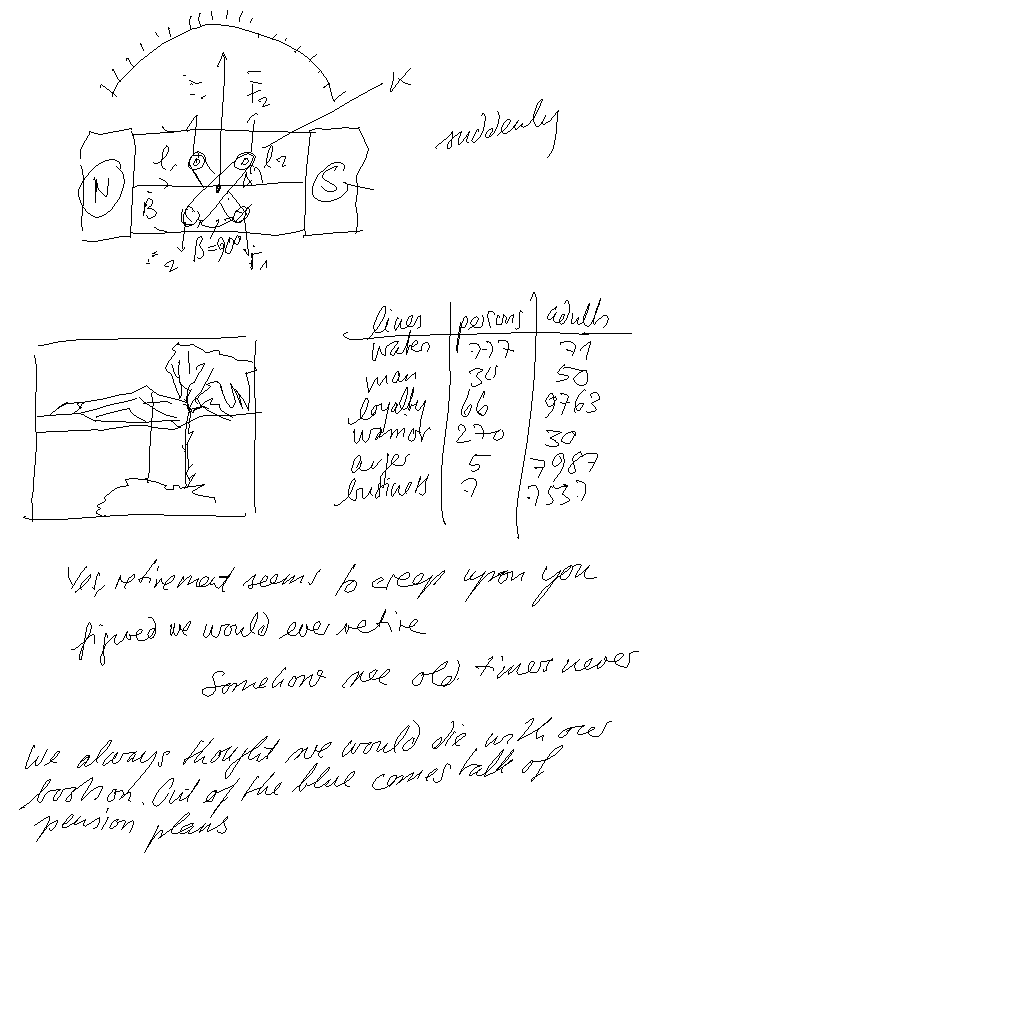 K
F2
suddenly
l1 l2
N S
B
β=90°
2 F1
lines persons adults
water 777 71
man 30 50
loyalty 66 9763
warrior 270 30
anger 5 7987
business 7 7537
Yes, retirement seems to creep upon you
figured we would ever retire
Somehow we old timers never
We always thought we would die with our
boots on. Out of the blue comes talk of
pension plans